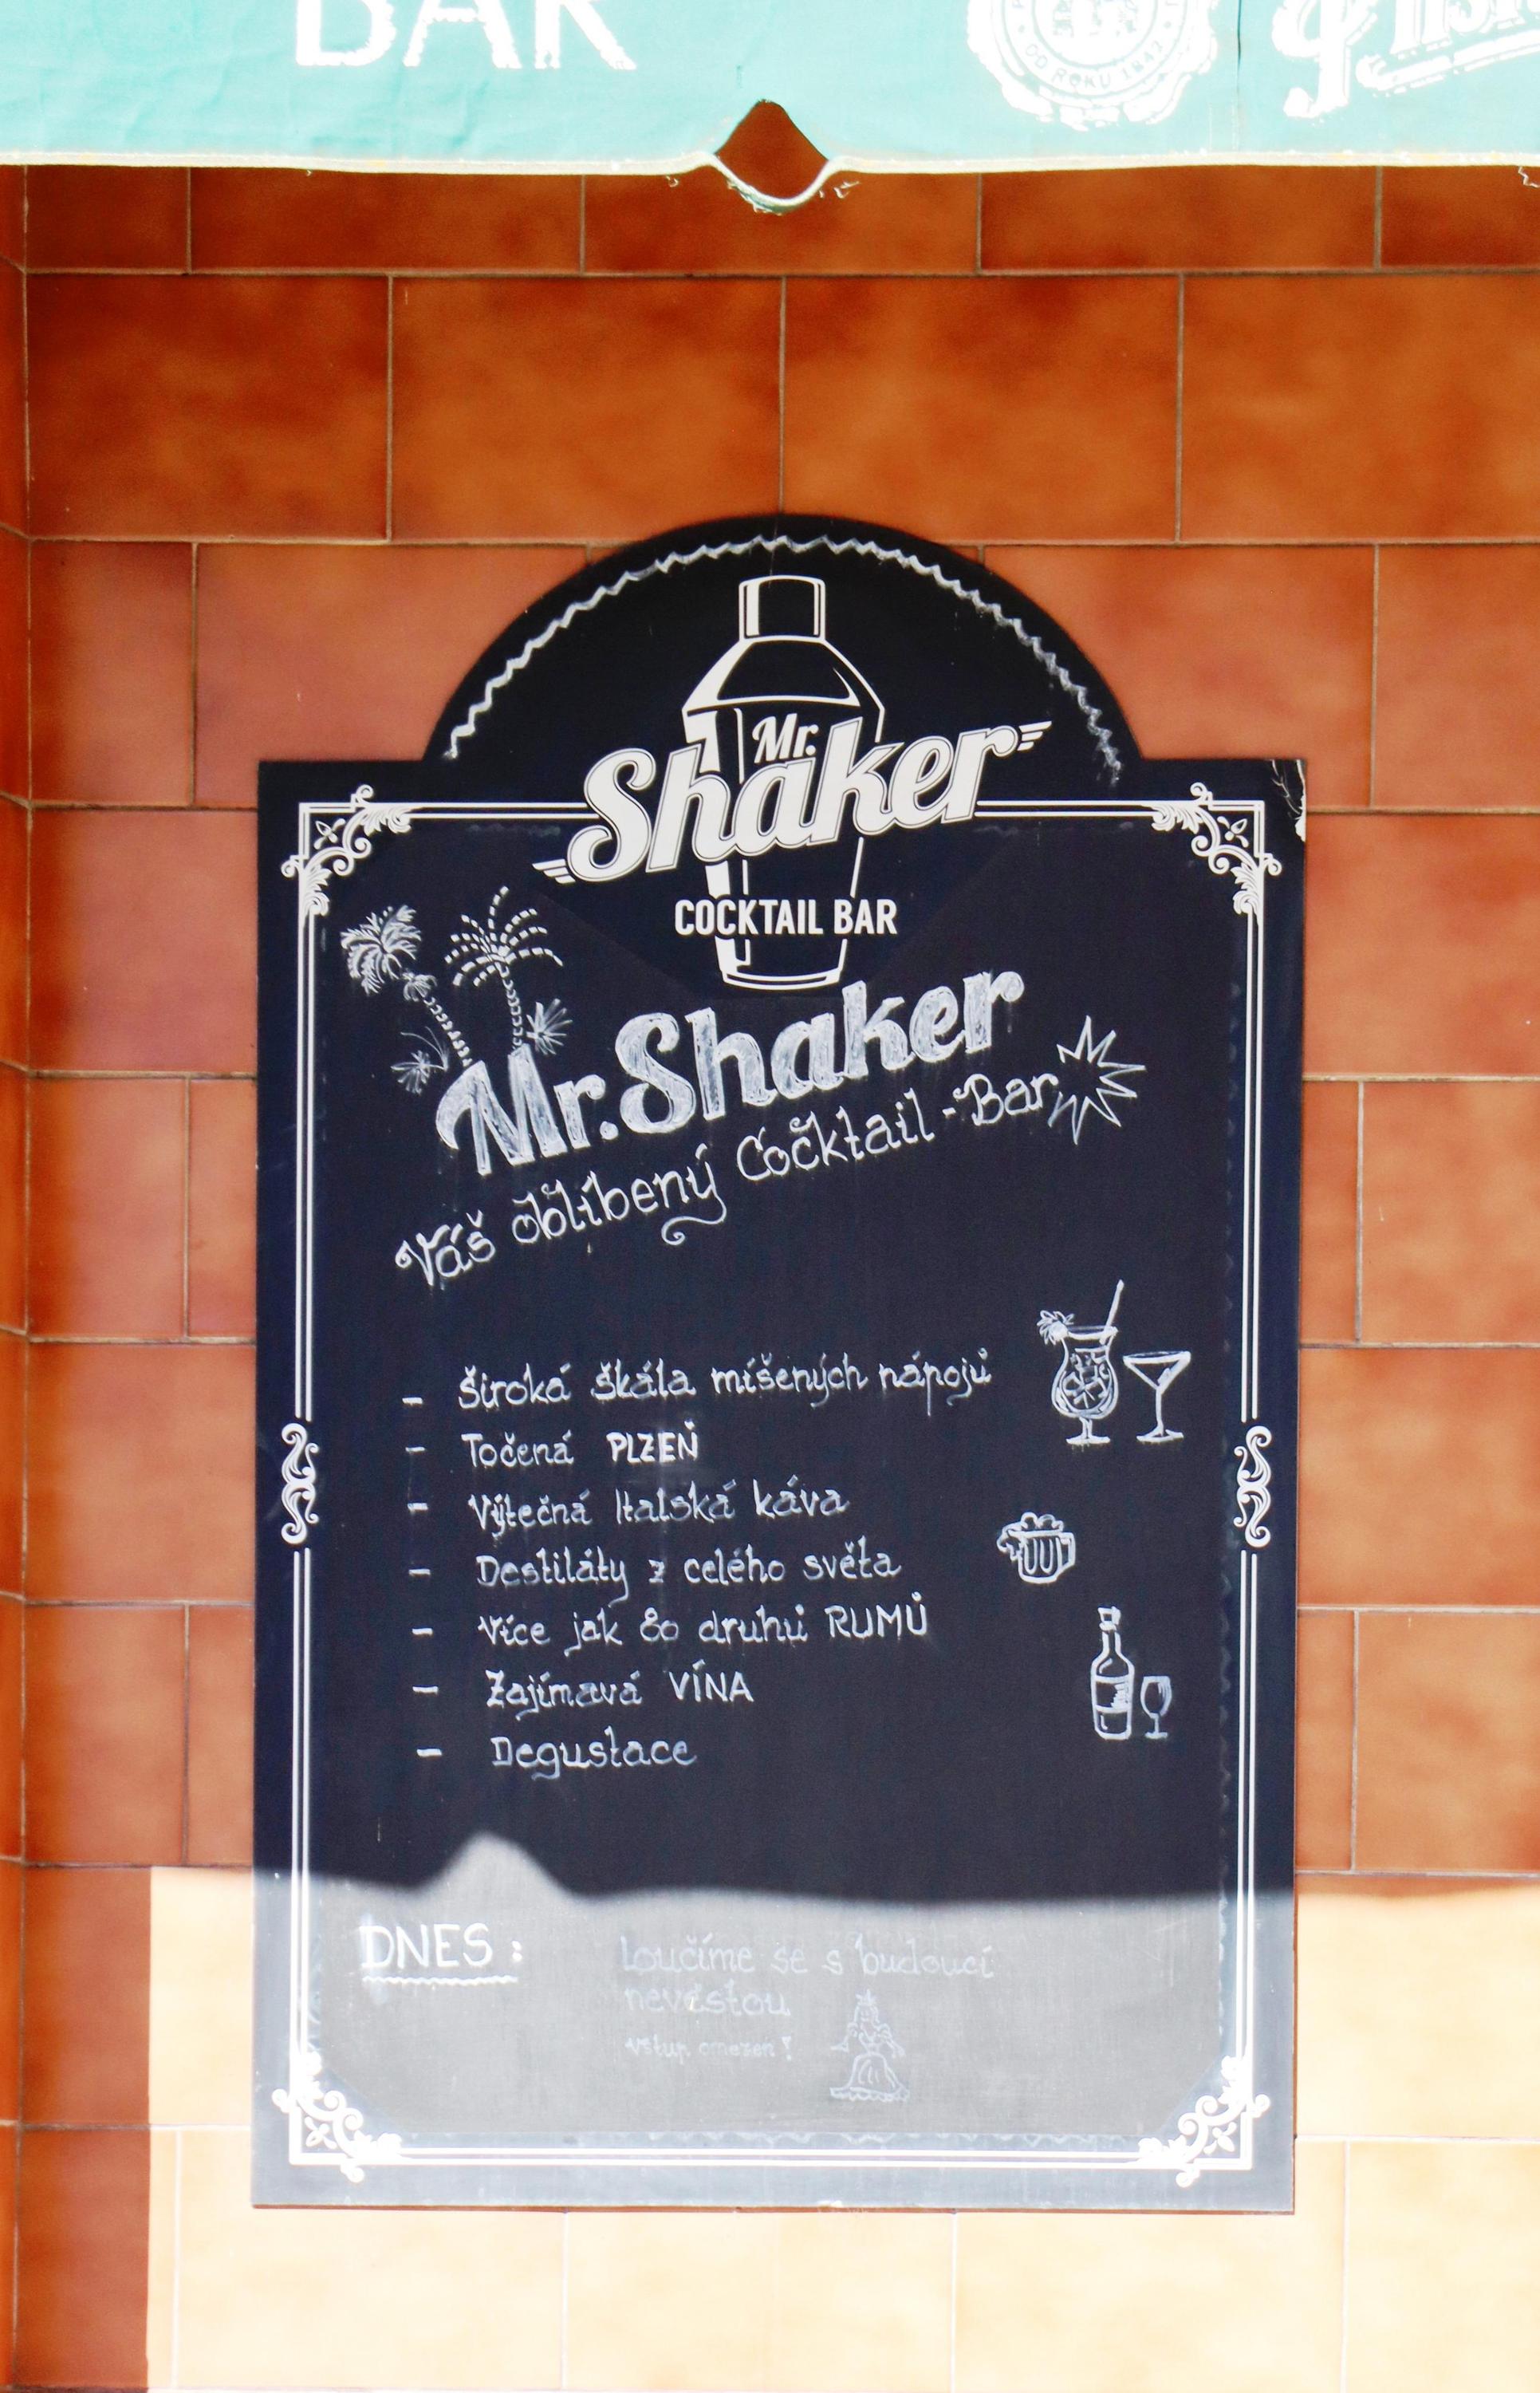 BAR
OD ROKU 1842
Mr.
Shaker
COCKTAIL BAR
Mr. Shaker
Váš oblíbený Cocktail-Bar
- Široká škála míšených nápojů
- Točená PLZEŇ
- Výtečná Italská káva
- Destiláty z celého světa
- Více jak 80 druhů RUMŮ
- Zajímavá VÍNA
- Degustace
DNES:
Loučíme se s budoucí
nevěstou
vstup omezen!